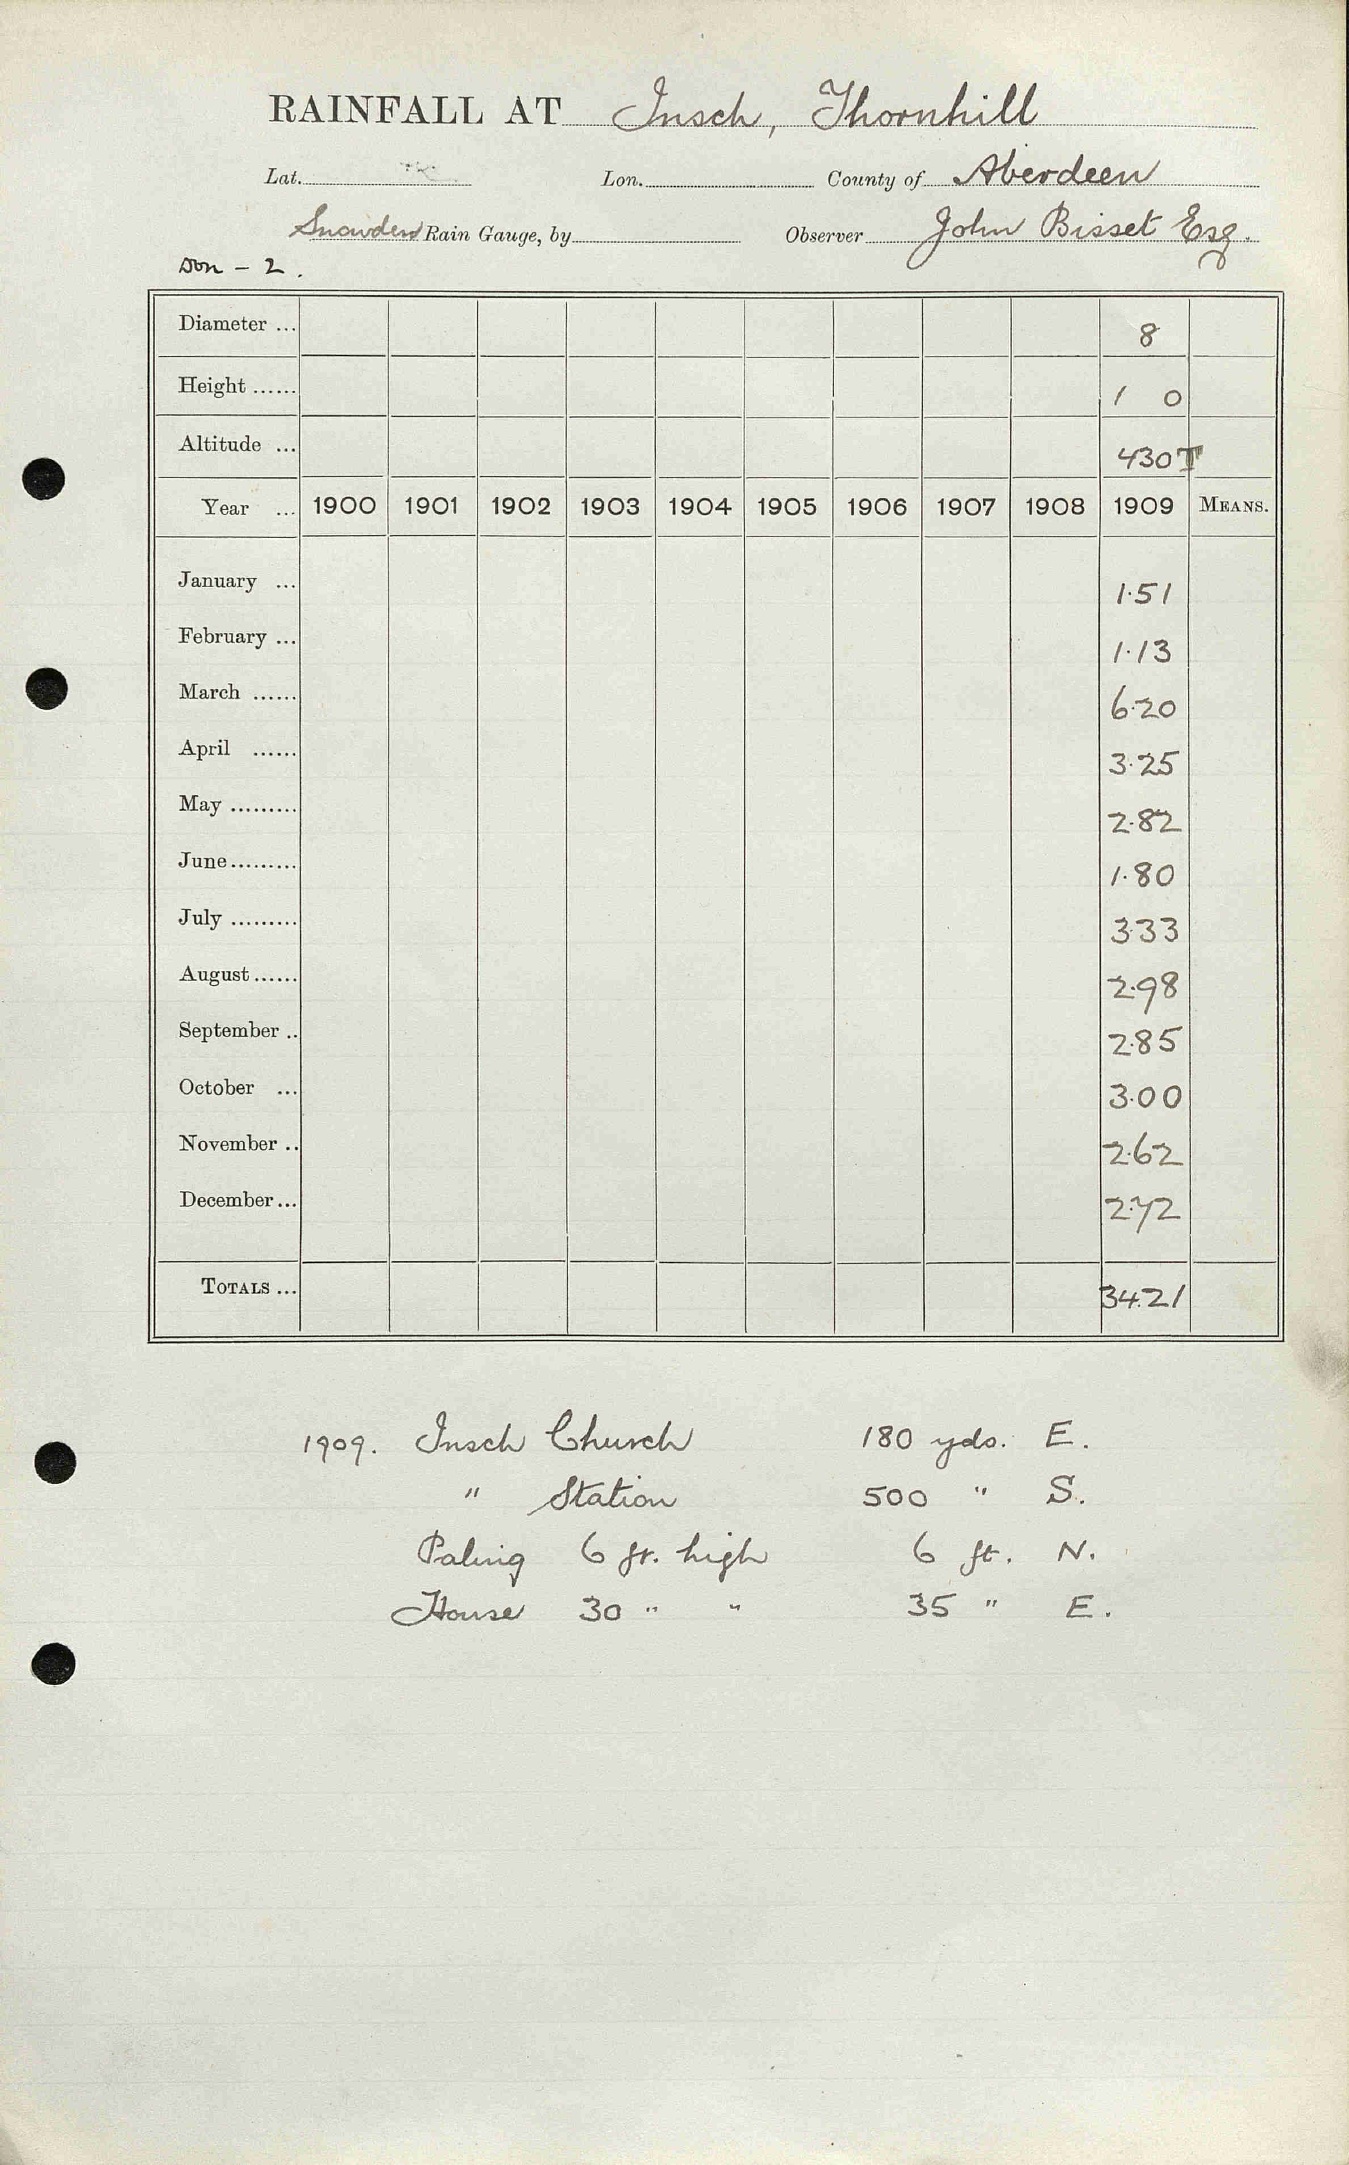 RAINFALL AT Insch, Thornhill
Lat. Lon. County of Aberdeen
Snowden Rain Gauge, by Observer John Bisset Esq.
Don - 2.
Diameter ... 8
Height ...... 1 0
Altitude ... 430 T
Year ... 1900 1901 1902 1903 1904 1905 1906 1907 1908 1909 MEANS.
January ... 1.51
February ... 1.13
March ...... 6.20
April ...... 3.25
May ......... 2.82
June ......... 1.80
July ......... 3.33
August ...... 2.98
September .. 2.85
October ... 3.00
November .. 2.62
December ... 2.72
TOTALS ... 34.21
1909. Insch Church 180 yds. E.
" Station 500 " S.
Paling 6 ft. high 6 ft. N.
House 30 " " 35 " E.